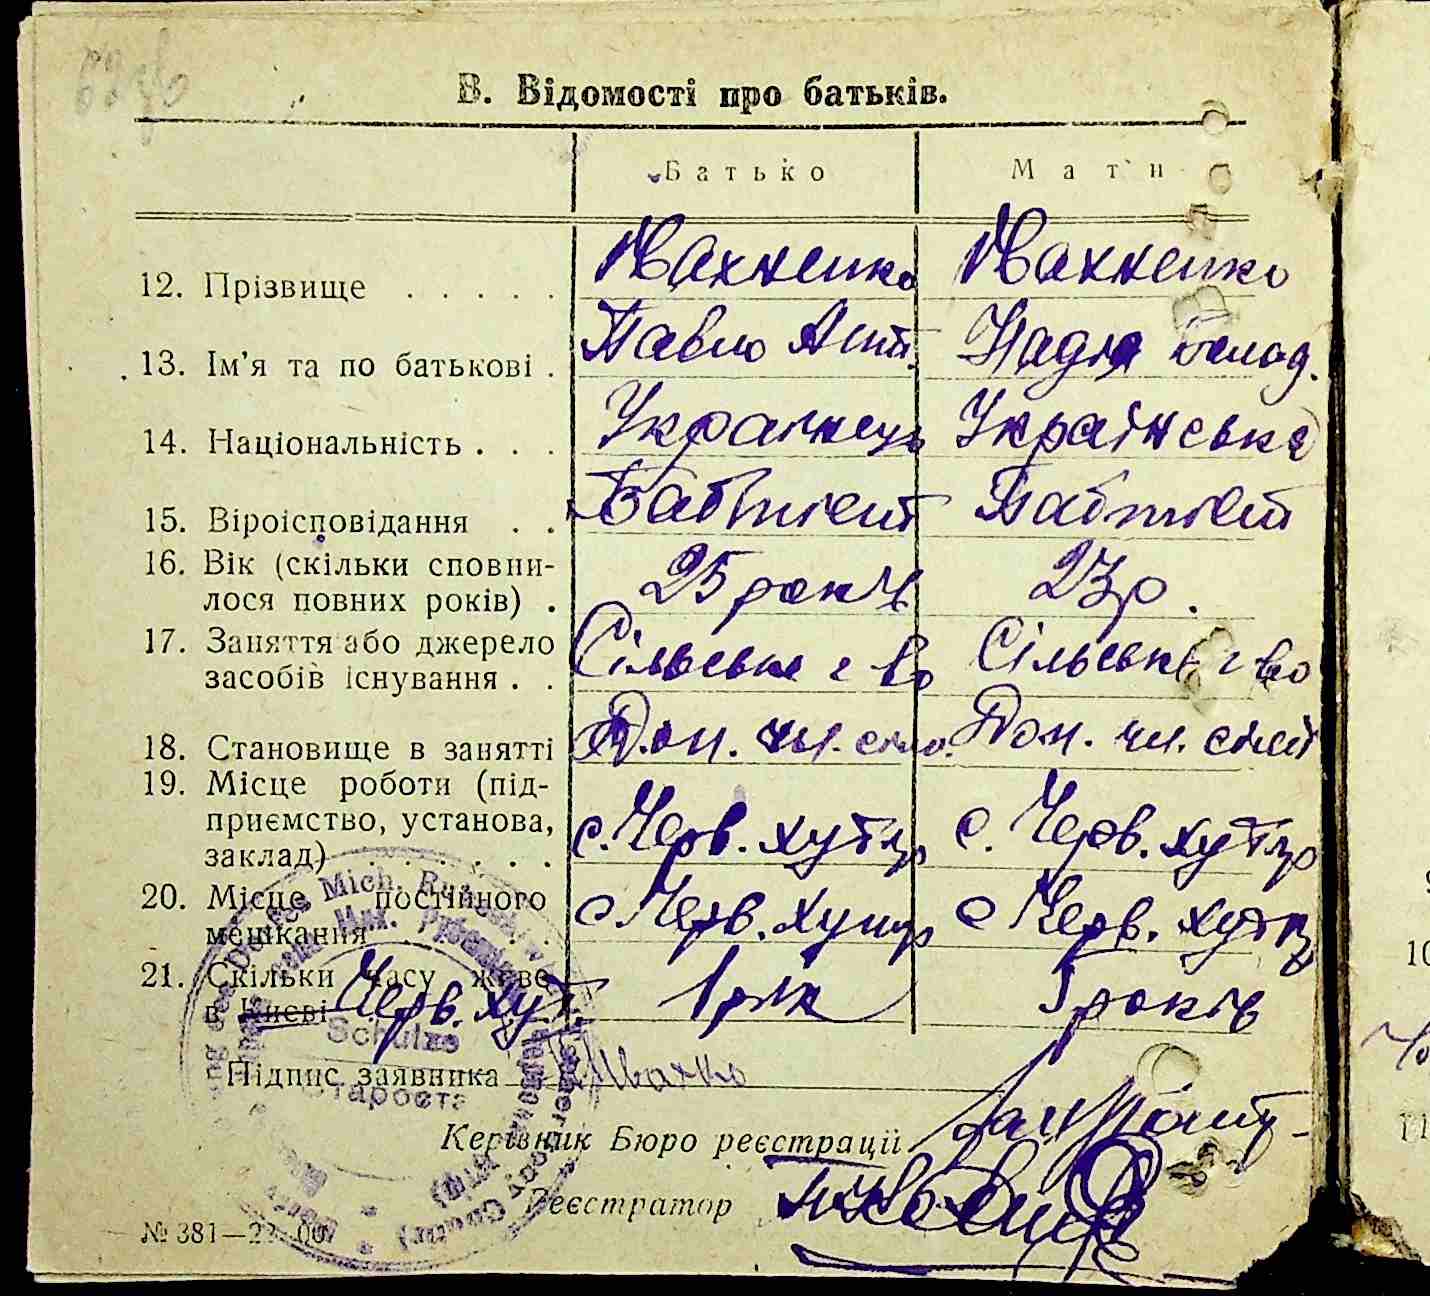 В. Відомості про батьків.
Батько Мати
12. Прізвище . . . . . Івахненко Івахненко
13. Ім'я та по батькові . Павло Ант. Надія Волод.
14. Національність . . . Українець Українська
15. Віроісповідання . . Баптист Баптист
16. Вік (скільки сповни-
лося повних років) . 25 років 23 р.
17. Заняття або джерело
засобів існування . . Сільське г-во Сільське г-во
18. Становище в занятті Доп. чл. сім. Доп. чл. сім
19. Місце роботи (під-
приємство, установа,
заклад) . . . . . . с. Черв. хутір с. Черв. хутір
20. Місце постійного
мешкання с Черв. Хутір с Черв. хутір
21. Скільки часу живе
в Києві Черв. хут. 1 рік 5 років
Schulze
Староста
Підпис заявника
Керівник Бюро реєстрації
Реєстратор
№ 381—22